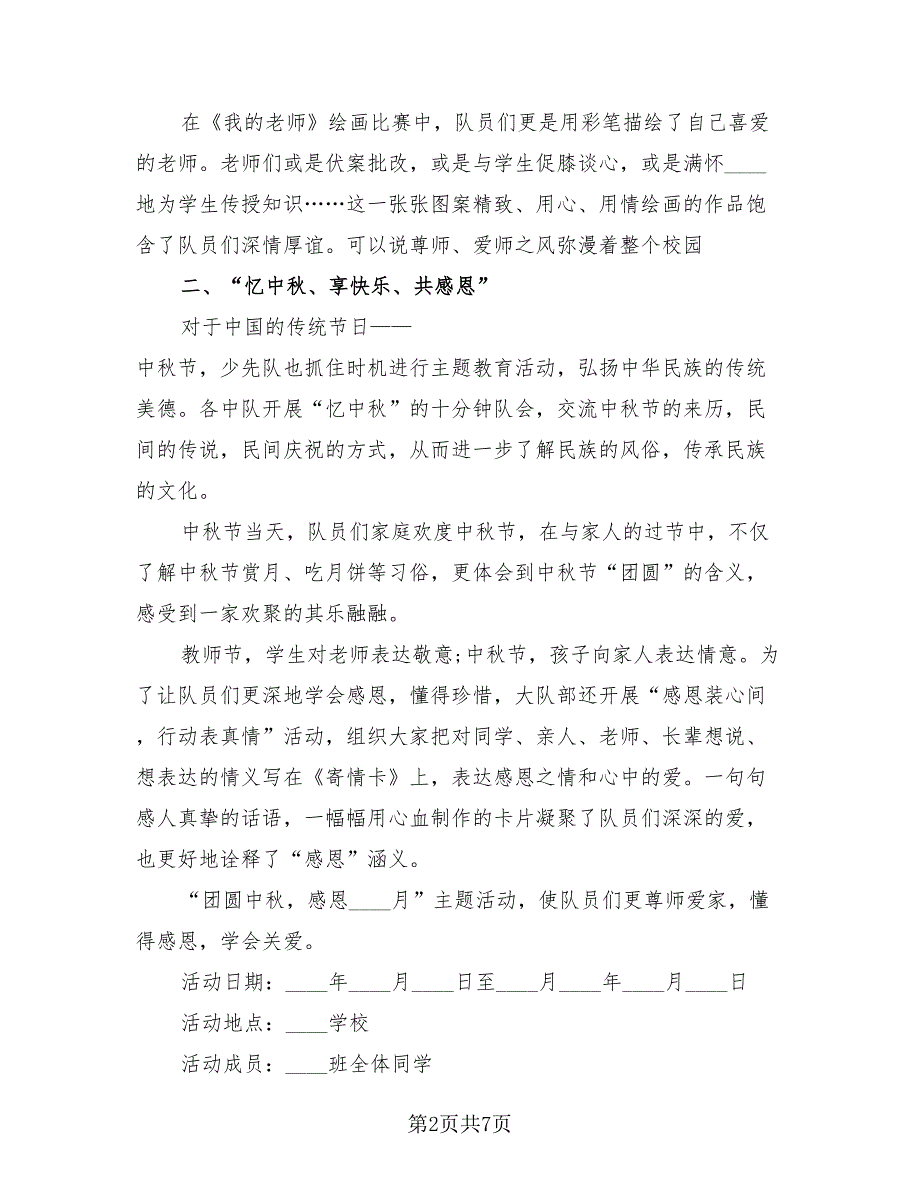 在《我的老师》绘画比赛中，队员们更是用彩笔描绘了自己喜爱
的老师。老师们或是伏案批改，或是与学生促膝谈心，或是满怀____
地为学生传授知识……这一张张图案精致、用心、用情绘画的作品饱
含了队员们深情厚谊。可以说尊师、爱师之风弥漫着整个校园
二、“忆中秋、享快乐、共感恩”
对于中国的传统节日——
中秋节，少先队也抓住时机进行主题教育活动，弘扬中华民族的传统
美德。各中队开展“忆中秋”的十分钟队会，交流中秋节的来历，民
间的传说，民间庆祝的方式，从而进一步了解民族的风俗，传承民族
的文化。
中秋节当天，队员们家庭欢度中秋节，在与家人的过节中，不仅
了解中秋节赏月、吃月饼等习俗，更体会到中秋节“团圆”的含义，
感受到一家欢聚的其乐融融。
教师节，学生对老师表达敬意;中秋节，孩子向家人表达情意。为
了让队员们更深地学会感恩，懂得珍惜，大队部还开展“感恩装心间
，行动表真情”活动，组织大家把对同学、亲人、老师、长辈想说、
想表达的情义写在《寄情卡》上，表达感恩之情和心中的爱。一句句
感人真挚的话语，一幅幅用心血制作的卡片凝聚了队员们深深的爱，
也更好地诠释了“感恩”涵义。
“团圆中秋，感恩____月”主题活动，使队员们更尊师爱家，懂
得感恩，学会关爱。
活动日期：____年____月____日至____月____年____月____日
活动地点：____学校
活动成员：____班全体同学
第2页共7页